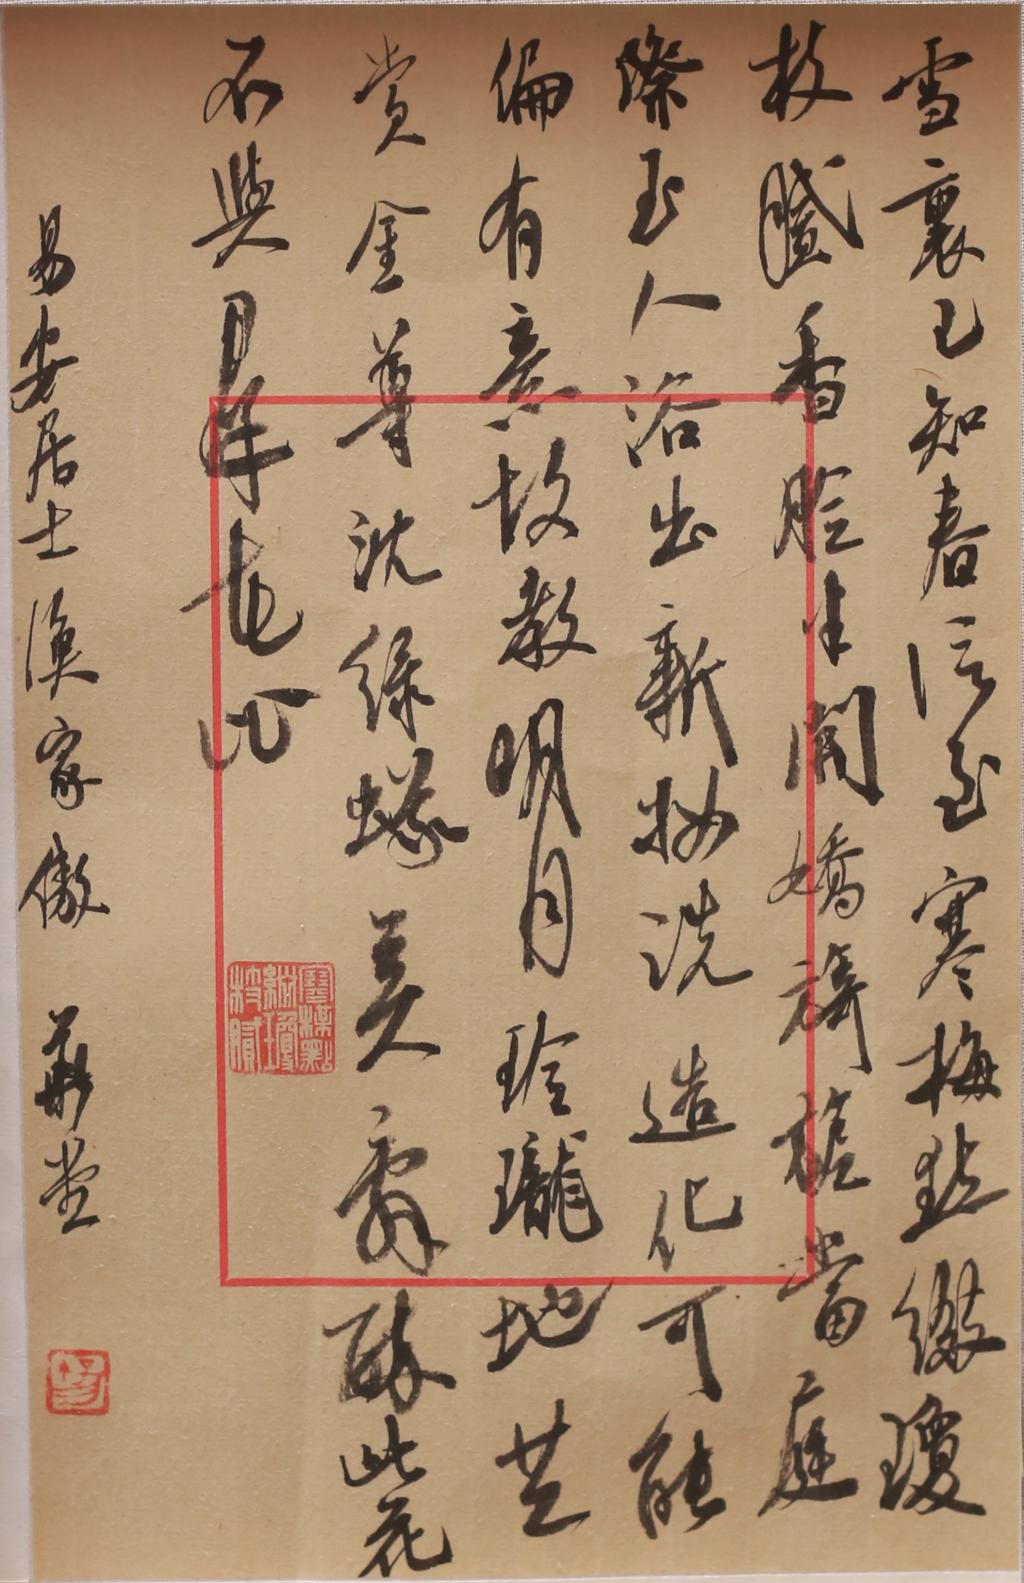 雪裏已知春信至寒梅點綴瓊
枝膩香臉半開嬌旖旎當庭
際玉人浴出新妝洗造化可能
偏有意故教明月玲瓏地共
賞金尊沈綠蟻莫辭醉此花
不與群花比
易安居士漁家傲
寒梅點綴瓊枝膩